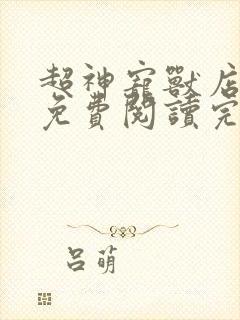 超神寵獸店
免費閱讀完
呂萌